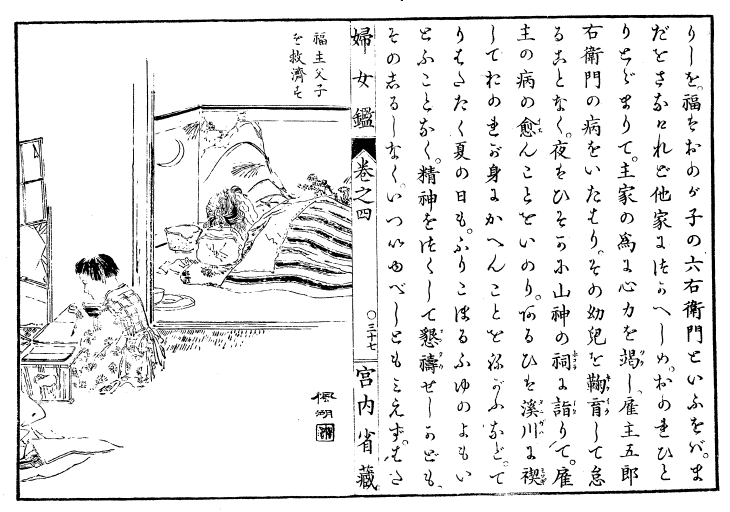 りしを。福はおのが子の六右衛門といふをバ。ま
だをさなけれど他家につかへしめ。おのれひと
りとゞまりて。主家の爲に心力を竭し、雇主五郎
右衛門の病をいたはり。その幼兒を鞠育して怠
ることなく。夜はひそかに山神の祠に詣りて。雇
主の病の愈んことをいのり。あるひは溪川に禊
しておのれが身にかへんことをねがふなど。て
りはたたく夏の日も。ふりこほるふゆのよもい
とふことなく。精神をつくして懇禱せしかども。
そのしるしなく。いついゆべしともみえず。はた
婦女鑑 卷之四 〇三十七 宮内省藏
福主父子
を救濟す
楓湖